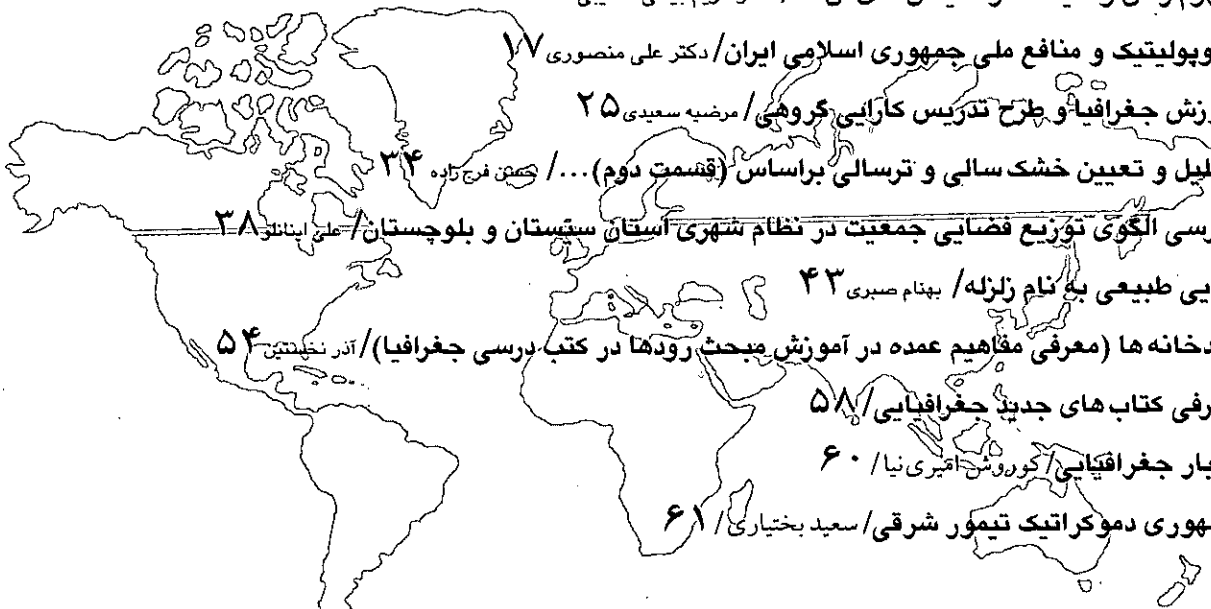 وپولیتیک و منافع ملی جمهوری اسلامی ایران/ دکتر علی منصوری ۱۷
زش جغرافیا و طرح تدریس کارایی گروهی/ مرضیه سعیدی ۲۵
لیل و تعیین خشک سالی و ترسالی براساس (قسمت دوم).../ حسن فرج زاده ۳۴
رسی الگوی توزیع فضایی جمعیت در نظام شهری استان سیستان و بلوچستان/ علی اینانلو ۳۸
یی طبیعی به نام زلزله/ بهنام صبری ۴۳
دخانه ها (معرفی مفاهیم عمده در آموزش مبحث رودها در کتب درسی جغرافیا)/ آذر نخستین ۵۴
رفی کتاب های جدید جغرافیایی/ ۵۸
بار جغرافیایی/ کوروش امیری نیا/ ۶۰
هوری دموکراتیک تیمور شرقی/ سعید بختیاری/ ۶۱